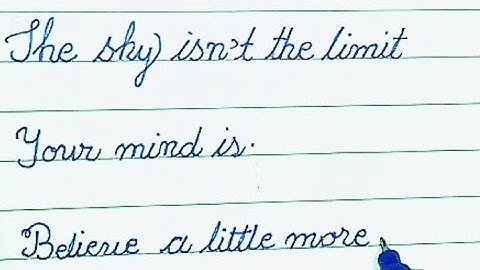 The sky isn't the limit
Your mind is.
Believe a little more